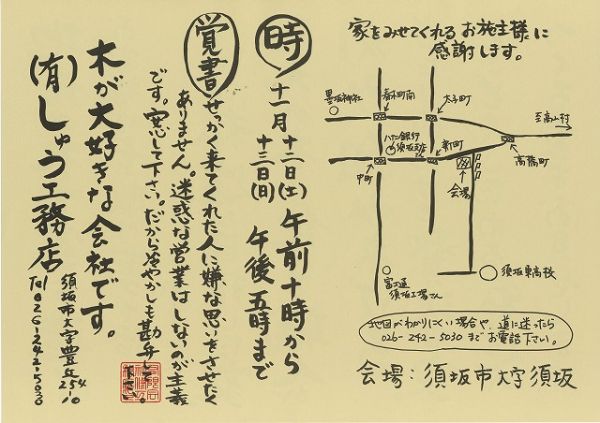 家をみせてくれるお施主様に
感謝します。
墨坂神社
春木町南
太子町
至高山村
八十二銀行
須坂支店
新町
高橋町
中町
会場
富士通
須坂工場さん
須坂東高校
地図がわかりにくい場合や、道に迷ったら
026-242-5030までお電話下さい。
会場：須坂市大字須坂
時
十一月十二日(土)
十三日(日)
午前十時から
午後五時まで
覚書
せっかく来てくれた人に嫌な思いをさせたく
ありません。迷惑な営業はしないのが主義
です。安心して下さい。だから冷やかしも勘弁して
下さい。
木が大好きな会社です。
(有)しゅう工務店
須坂市大字豊丘254-10
Tel 026-242-5030